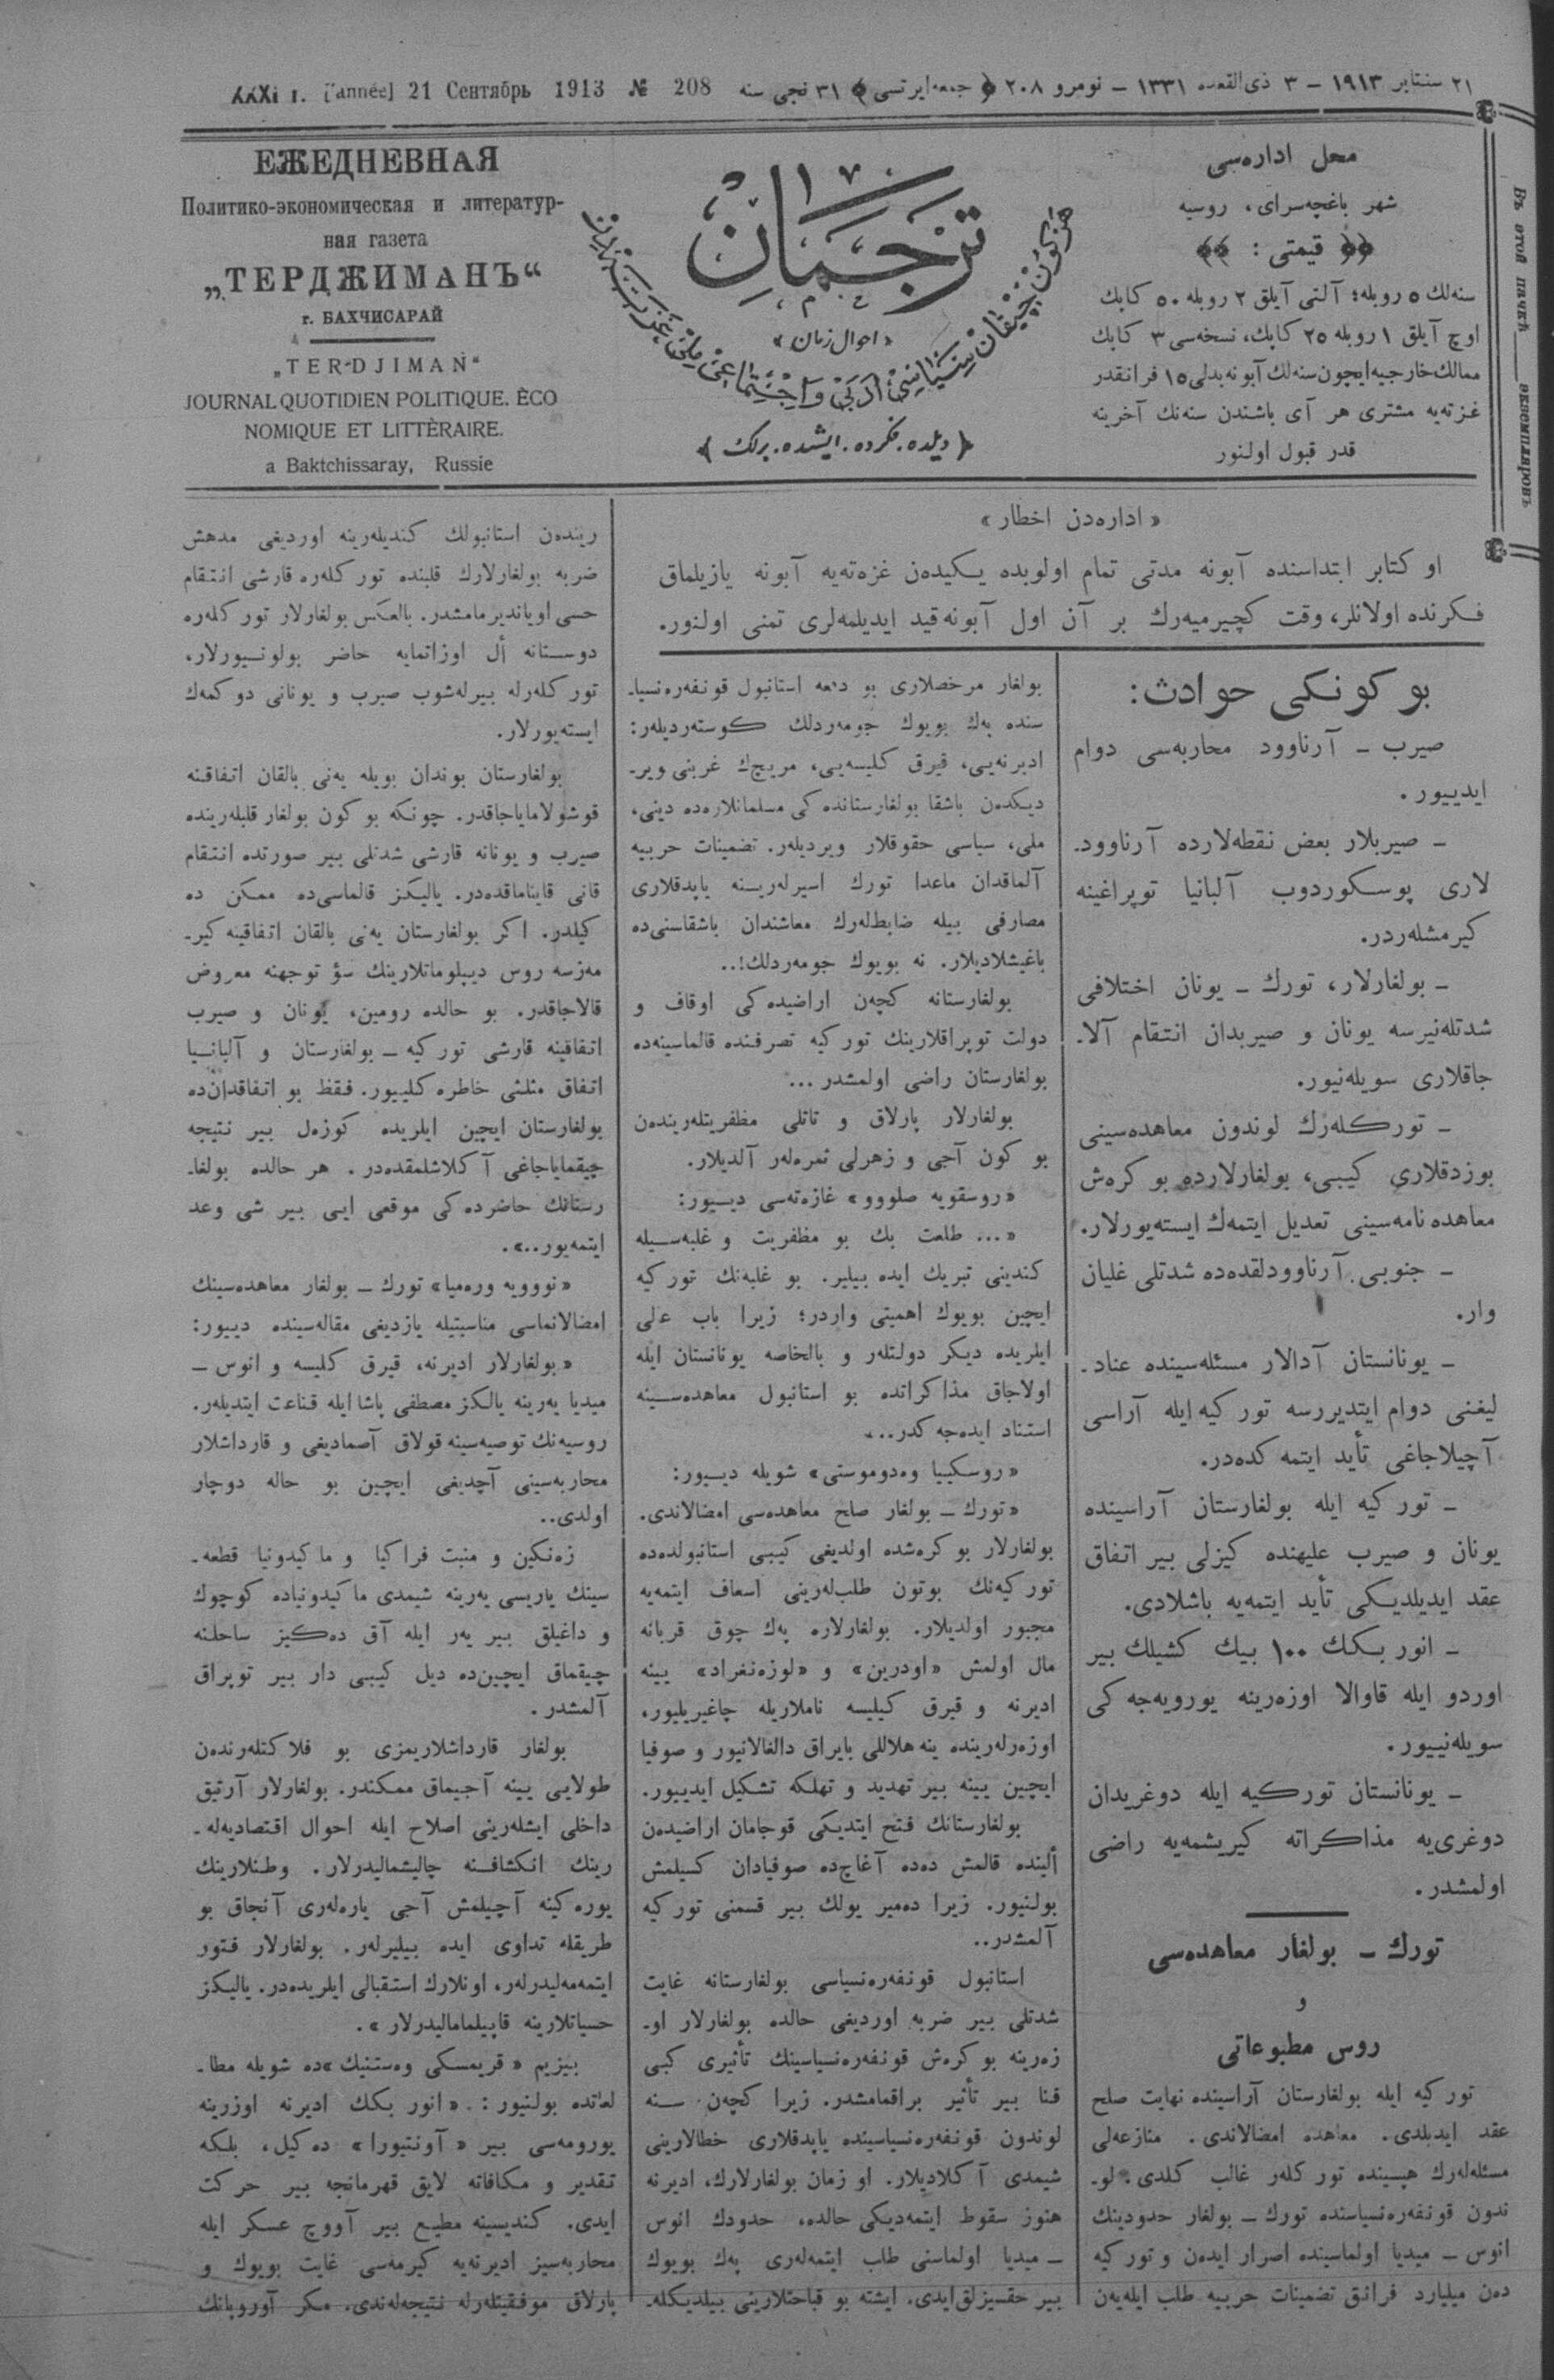 XXXI г. [année] 21 Сентябрь 1913 № 208
٢١ سنتابر ١٩١٣ – ٣ ذی‌القعده ١٣٣١ – نومرو ٢٠٨ ﴿ جمعه‌ایرتسی ﴾ ٣١ نجی سنه
ЕЖЕДНЕВНАЯ
Политико-экономическая и литератур-
ная газета
„ТЕРДЖИМАНЪ“
г. БАХЧИСАРАЙ
„TERDJIMAN“
JOURNAL QUOTIDIEN POLITIQUE. ÈCO
NOMIQUE ET LITTÈRAIRE.
a Baktchissaray, Russie
ترجمان
«احوال زمان»
هر کون چیقان سیاسی، ادبی و اجتماعی ملی غزته‌در
﴿ دیلده. فکرده. ایشده. برلك ﴾
محل اداره‌سی
شهر باغچه‌سرای، روسیه
﴿﴿ قیمتی : ﴾﴾
سنه‌لك ٥ روبله؛ آلتی آیلق ٢ روبله ٥٠ کاپك
اوچ آیلق ١ روبله ٢٥ کاپك، نسخه‌سی ٣ کاپك
ممالك خارجیه ایچون سنه‌لك آبونه بدلی ١٥ فرانقدر
غزته‌یه مشتری هر آی باشندن سنه‌نك آخرینه
قدر قبول اولنور
Въ этой пачкѣ ____ экземпляровъ
« اداره‌دن اخطار »
اوكتابر ابتداسنده آبونه مدتی تمام اولوبده یكیدەن غزەتەیه آبونه یازیلماق
فكرنده اولانلر، وقت كچیرمیەرك بر آن اول آبونه قید ایدیلمەلری تمنی اولنور.
بو كونكی حوادث:
صیرب – آرناوود محاربەسی دوام
ایدییور.
– صیربلار بعض نقطەلارده آرناوود-
لاری پوسكوردوب آلبانیا توپراغینه
كیرمشلەردر.
– بولغارلار، تورك – یونان اختلافی
شدتلەنیرسه یونان و صیربدان انتقام آلا-
جاقلاری سویلەنیور.
– توركلەرك لوندون معاهدەسینی
بوزدقلاری كیبی، بولغارلارده بو كرەش
معاهده نامەسینی تعدیل ایتمەك ایستەیورلار.
– جنوبی آرناوودلقدەده شدتلی غلیان
وار.
– یونانستان آدالار مسئلەسینده عناد-
لیغنی دوام ایتدیررسه توركیه ایله آراسی
آچیلاجاغی تأید ایتمەكدەدر.
– توركیه ایله بولغارستان آراسینده
یونان و صیرب علیهنده كیزلی بیر اتفاق
عقد ایدیلدیكی تأید ایتمەیه باشلادی.
– انور بكك ١٠٠ بیك كشیلك بیر
اوردو ایله قاوالا اوزەرینه یورویەجەكی
سویلەنییور.
– یونانستان توركیه ایله دوغریدان
دوغری‌یه مذاكراته كیریشمەیه راضی
اولمشدر.
تورك – بولغار معاهدەسی
و
روس مطبوعاتی
توركیه ایله بولغارستان آراسینده نهایت صلح
عقد ایدیلدی. معاهده امضالاندی. منازعەلی
مسئلەلەرك هپسینده توركلەر غالب كلدی. لو-
ندون قونفەرەنسیاسنده تورك – بولغار حدودینك
انوس – میدیا اولماسینده اصرار ایدەن و توركیه
دەن میلیارد فرانق تضمینات حربیه طلب ایلەیەن
بولغار مرخصلاری بو دفعه استانبول قونفەرەنسیا-
سنده پەك بویوك جومەردلك كوستەردیلەر:
ادیرنەیی، قیرق كلیسەیی، مریچك غربنی ویر-
دیكدەن باشقا بولغارستاندەكی مسلمانلارەده دینی،
ملی، سیاسی حقوقلار ویردیلەر. تضمینات حربیه
آلماقدان ماعدا تورك اسیرلەرینه یاپدقلاری
مصارفی بیله ضابطلەرك معاشندان باشقاسنی‌ده
باغیشلادیلار. نه بویوك جومەردلك!..
بولغارستانه كچەن اراضیدەكی اوقاف و
دولت توپراقلارینك توركیه تصرفنده قالماسینەده
بولغارستان راضی اولمشدر...
بولغارلار پارلاق و تاتلی مظفریتلەریندەن
بو كون آجی و زهرلی ثمرەلەر آلدیلار.
«روسقویه صلووو» غازەتەسی دییور:
«... طلعت بك بو مظفریت و غلبەسیله
كندینی تبریك ایده بیلیر. بو غلبەنك توركیه
ایچین بویوك اهمیتی واردر؛ زیرا باب عالی
ایلریده دیكر دولتلەر و بالخاصه یونانستان ایله
اولاجاق مذاكراتده بو استانبول معاهدەسینه
استناد ایدەجەكدر..»
«روسكییا وەدوموستی» شویله دییور:
«تورك – بولغار صلح معاهدەسی امضالاندی.
بولغارلار بو كرەشده اولدیغی كیبی استانبولدەده
توركیەنك بوتون طلبلەرینی اسعاف ایتمەیه
مجبور اولدیلار. بولغارلاره پەك چوق قربانه
مال اولمش «اودرین» و «لوزەنغراد» یینه
ادیرنه و قیرق كیلیسه ناملاریله چاغیریلیور،
اوزەرلەرینده ینه هلاللی بایراق دالغالانیور و صوفیا
ایچین یینه بیر تهدید و تهلكه تشكیل ایدییور.
بولغارستانك فتح ایتدیكی قوجامان اراضیدەن
ألینده قالمش دەده آغاچ‌ده صوفیادان كسیلمش
بولنیور. زیرا دەمیر یولك بیر قسمنی توركیه
آلمشدر..
استانبول قونفەرەنسیاسی بولغارستانه غایت
شدتلی بیر ضربه اوردیغی حالده بولغارلار او-
زەرینه بو كرەش قونفەرەنسیاسینك تأثیری كبی
فنا بیر تأثیر براقمامشدر. زیرا كچەن سنه
لوندون قونفەرەنسیاسینده یاپدقلاری خطالارینی
شیمدی آكلادیلار. او زمان بولغارلارك، ادیرنه
هنوز سقوط ایتمەدیكی حالده، حدودك انوس
– میدیا اولماسنی طلب ایتمەلەری پەك بویوك
بیر حقسیزلق‌ایدی. ایشته بو قباحتلارینی بیلدیكلە-
ریندەن استانبولك كندیلەرینه اوردیغی مدهش
ضربه بولغارلارك قلبنده توركلەره قارشی انتقام
حسی اویاندیرمامشدر. بالعكس بولغارلار توركلەره
دوستانه أل اوزاتمایه حاضر بولونیورلار،
توركلەرله بیرلەشوب صیرب و یونانی دوكمەك
ایستەیورلار.
بولغارستان بوندان بویله یەنی بالقان اتفاقنه
قوشولامایاجاقدر. چونكه بو كون بولغار قلبلەرینده
صیرب و یونانه قارشی شدتلی بیر صورتده انتقام
قانی قایناماقدەدر. یالیكز قالماسی‌ده ممكن ده
كیلدر. اكر بولغارستان یەنی بالقان اتفاقینه كیر-
مەزسه روس دیپلوماتلارینك سؤ توجهنه معروض
قالاجاقدر. بو حالده رومین، یونان و صیرب
اتفاقینه قارشی توركیه – بولغارستان و آلبانیا
اتفاق مثلثی خاطره كلییور. فقط بو اتفاقدان‌ده
بولغارستان ایچین ایلریده كوزەل بیر نتیجه
چیقمایاجاغی آكلاشلمقدەدر. هر حالده بولغا-
رستانك حاضردەكی موقعی ایی بیر شی وعد
ایتمەیور..».
«نوویه ورەمیا» تورك – بولغار معاهدەسینك
امضالانماسی مناسبتیله یازدیغی مقالەسینده دییور:
«بولغارلار ادیرنه، قیرق كلیسه و انوس –
میدیا یەرینه یالكز مصطفی پاشا ایله قناعت ایتدیلەر.
روسیەنك توصیەسینه قولاق آصمادیغی و قارداشلار
محاربەسینی آچدیغی ایچین بو حاله دوچار
اولدی..
زەنكین و منبت فراكیا و ماكیدونیا قطعە-
سینك یاریسی یەرینه شیمدی ماكیدونیاده كوچوك
و داغیلق بیر یەر ایله آق دەكیز ساحلنه
چیقماق ایچین‌ده دیل كیبی دار بیر توپراق
آلمشدر.
بولغار قارداشلاریمزی بو فلاكتلەرندەن
طولایی یینه آجیماق ممكندر. بولغارلار آرتیق
داخلی ایشلەرینی اصلاح ایله احوال اقتصادیەلە-
رینك انكشافنه چالیشمالیدرلار. وطنلارینك
یورەكینه آچیلمش آجی یارەلەری آنجاق بو
طریقله تداوی ایده بیلیرلەر. بولغارلار فتور
ایتمەمەلیدرلەر، اونلارك استقبالی ایلریدەدر. یالیكز
حسیاتلارینه قاپیلمامالیدرلار».
بیزیم «قریمسكی وەستنیك»ده شویله مطا-
لعاتده بولنیور: «انور بكك ادیرنه اوزرینه
یورومەسی بیر «آونتیورا» دەكیل، بلكه
تقدیر و مكافاته لایق قهرمانجه بیر حركت
ایدی. كندیسینه مطیع بیر آووچ عسكر ایله
محاربەسیز ادیرنەیه كیرمەسی غایت بویوك و
پارلاق موفقیتلەرله نتیجەلەندی. مكر آوروپانك